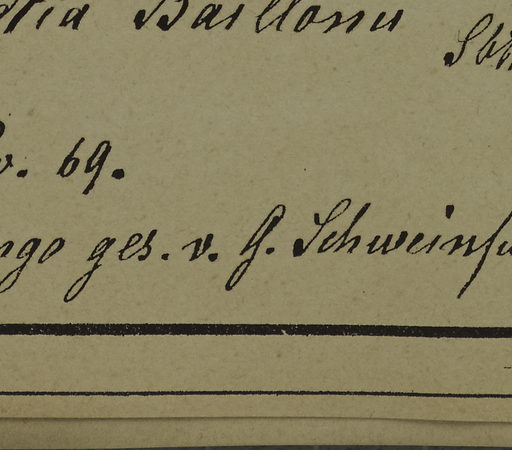 Baillonii Sbt
v. 69.
ngo ges. v. G. Schweinfu